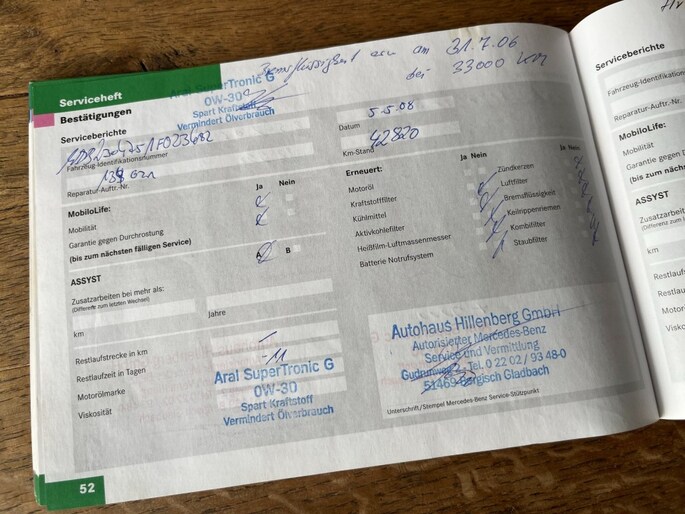 Bremsflüssigkeit ern am 31.7.06
bei 33000 km
Serviceheft
Bestätigungen
Aral SuperTronic G
0W-30
Spart Kraftstoff
Vermindert Ölverbrauch
Serviceberichte
Fahrzeug-Identifikationsnummer
Reparatur-Auftr.-Nr.
Datum 5.5.08
Km-Stand 42820
MobiloLife: Ja Nein
Mobilität
Garantie gegen Durchrostung
(bis zum nächsten fälligen Service)
ASSYST B
Zusatzarbeiten bei mehr als:
(Differenz zum letzten Wechsel)
km Jahre
Restlaufstrecke in km
Restlaufzeit in Tagen -11
Motorölmarke
Viskosität
Aral SuperTronic G
0W-30
Spart Kraftstoff
Vermindert Ölverbrauch
Erneuert: Ja Nein Ja Nein
Motoröl Zündkerzen
Kraftstofffilter Luftfilter
Kühlmittel Bremsflüssigkeit
Aktivkohlefilter Keilrippenriemen
Heißfilm-Luftmassenmesser Kombifilter
Batterie Notrufsystem Staubfilter
Autohaus Hillenberg GmbH
Autorisierter Mercedes-Benz
Service und Vermittlung
Tel. 0 22 02 / 93 48-0
51469 Bergisch Gladbach
Unterschrift/Stempel Mercedes-Benz Service-Stützpunkt
52
Serviceberichte
Fahrzeug-Identifikation
Reparatur-Auftr.-Nr.
MobiloLife:
Mobilität
Garantie gegen Du
(bis zum nächsten
ASSYST
Zusatzarbeiten
(Differenz zum le
km
Restlaufs
Restlaufz
Motorö
Viskos